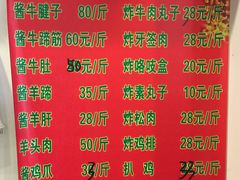 酱牛腱子 80/斤 炸牛肉丸子 28元/斤
酱牛蹄筋 60元/斤 炸牙签肉 28元/斤
酱牛肚 元/斤 炸咯吱盒 20元/斤
酱羊蹄 35/斤 炸素丸子 10元/斤
酱羊肝 28/斤 炸松肉 28元/斤
羊头肉 50/斤 炸鸡排 28元/斤
酱鸡爪 /斤 扒鸡 元/斤